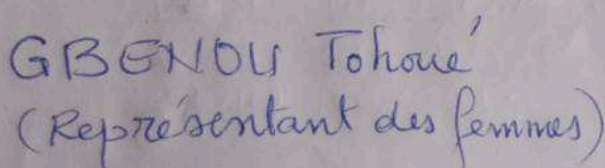 GBENOU Tohoué
(Représentant des femmes)